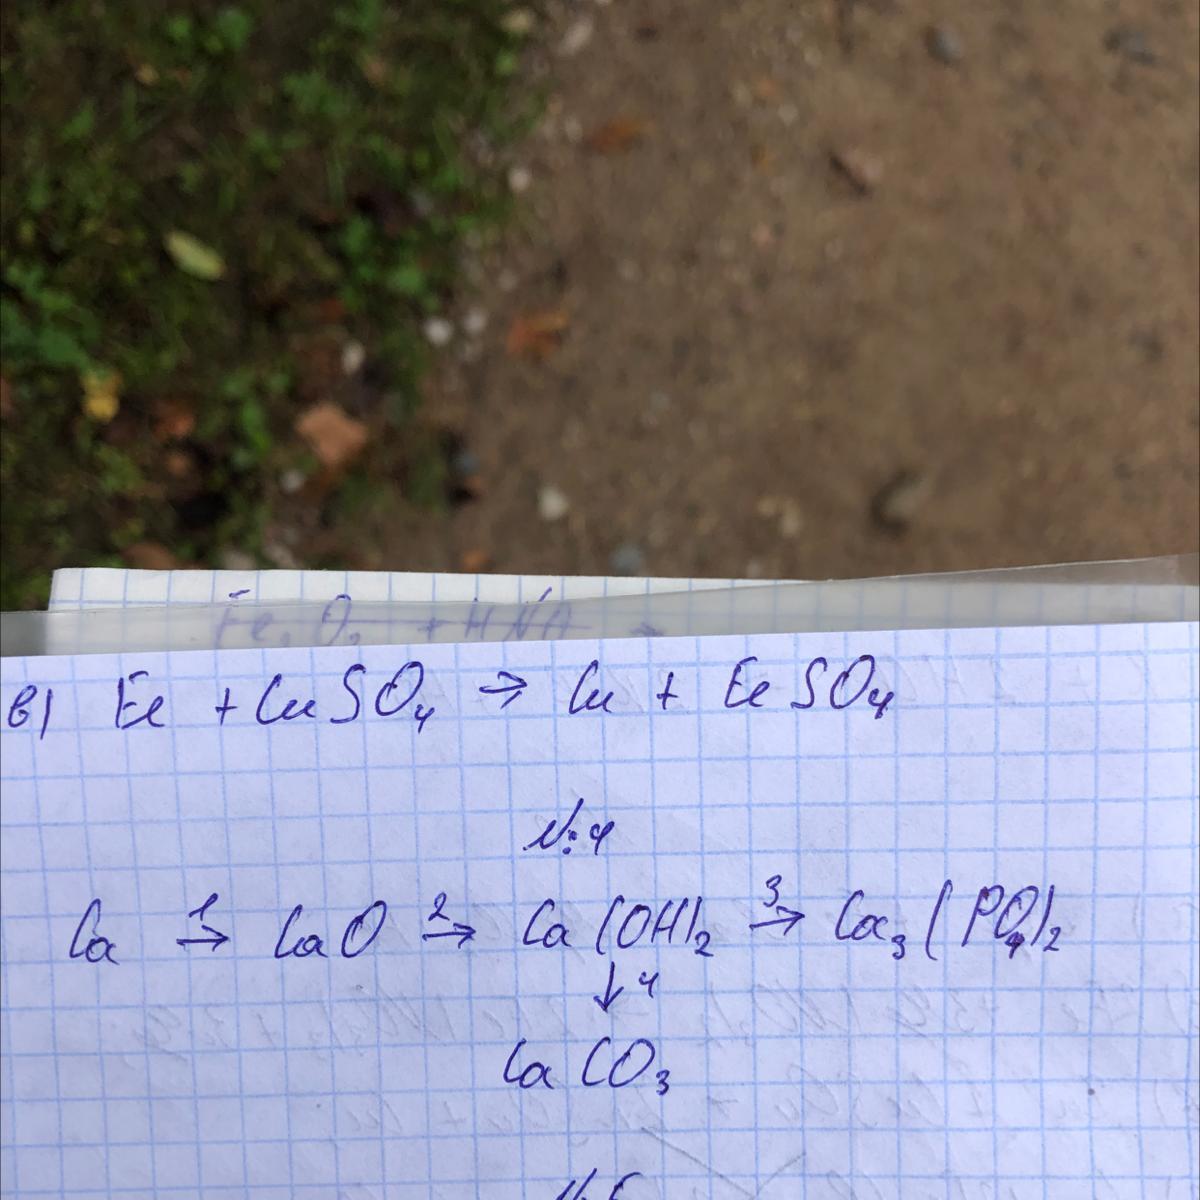 в) Fe + CuSO₄ → Cu + FeSO₄
№4
Ca →¹ CaO →² Ca(OH)₂ →³ Ca₃(PO₄)₂
↓ 4
CaCO₃